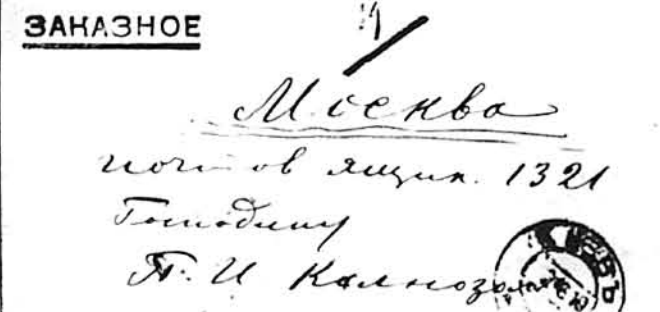 ЗАКАЗНОЕ
Москва
почтов ящик. 1321
Господину
П. И
КІЕВЪ